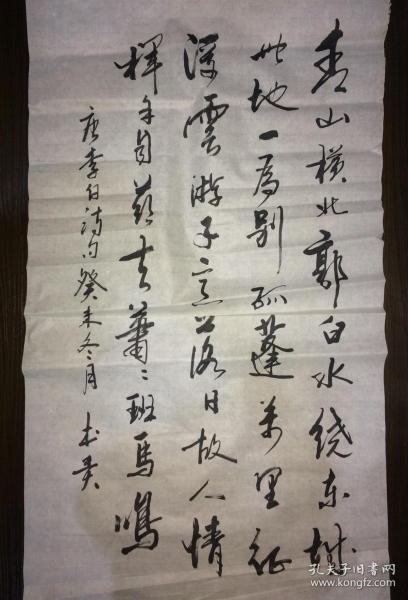 青山横北郭白水绕东城
此地一為别孤蓬萬里征
浮雲游子意落日故人情
挥手自兹去蕭〻班馬鳴
唐李白诗句癸未冬月
孔夫子旧书网
www.kongfz.com